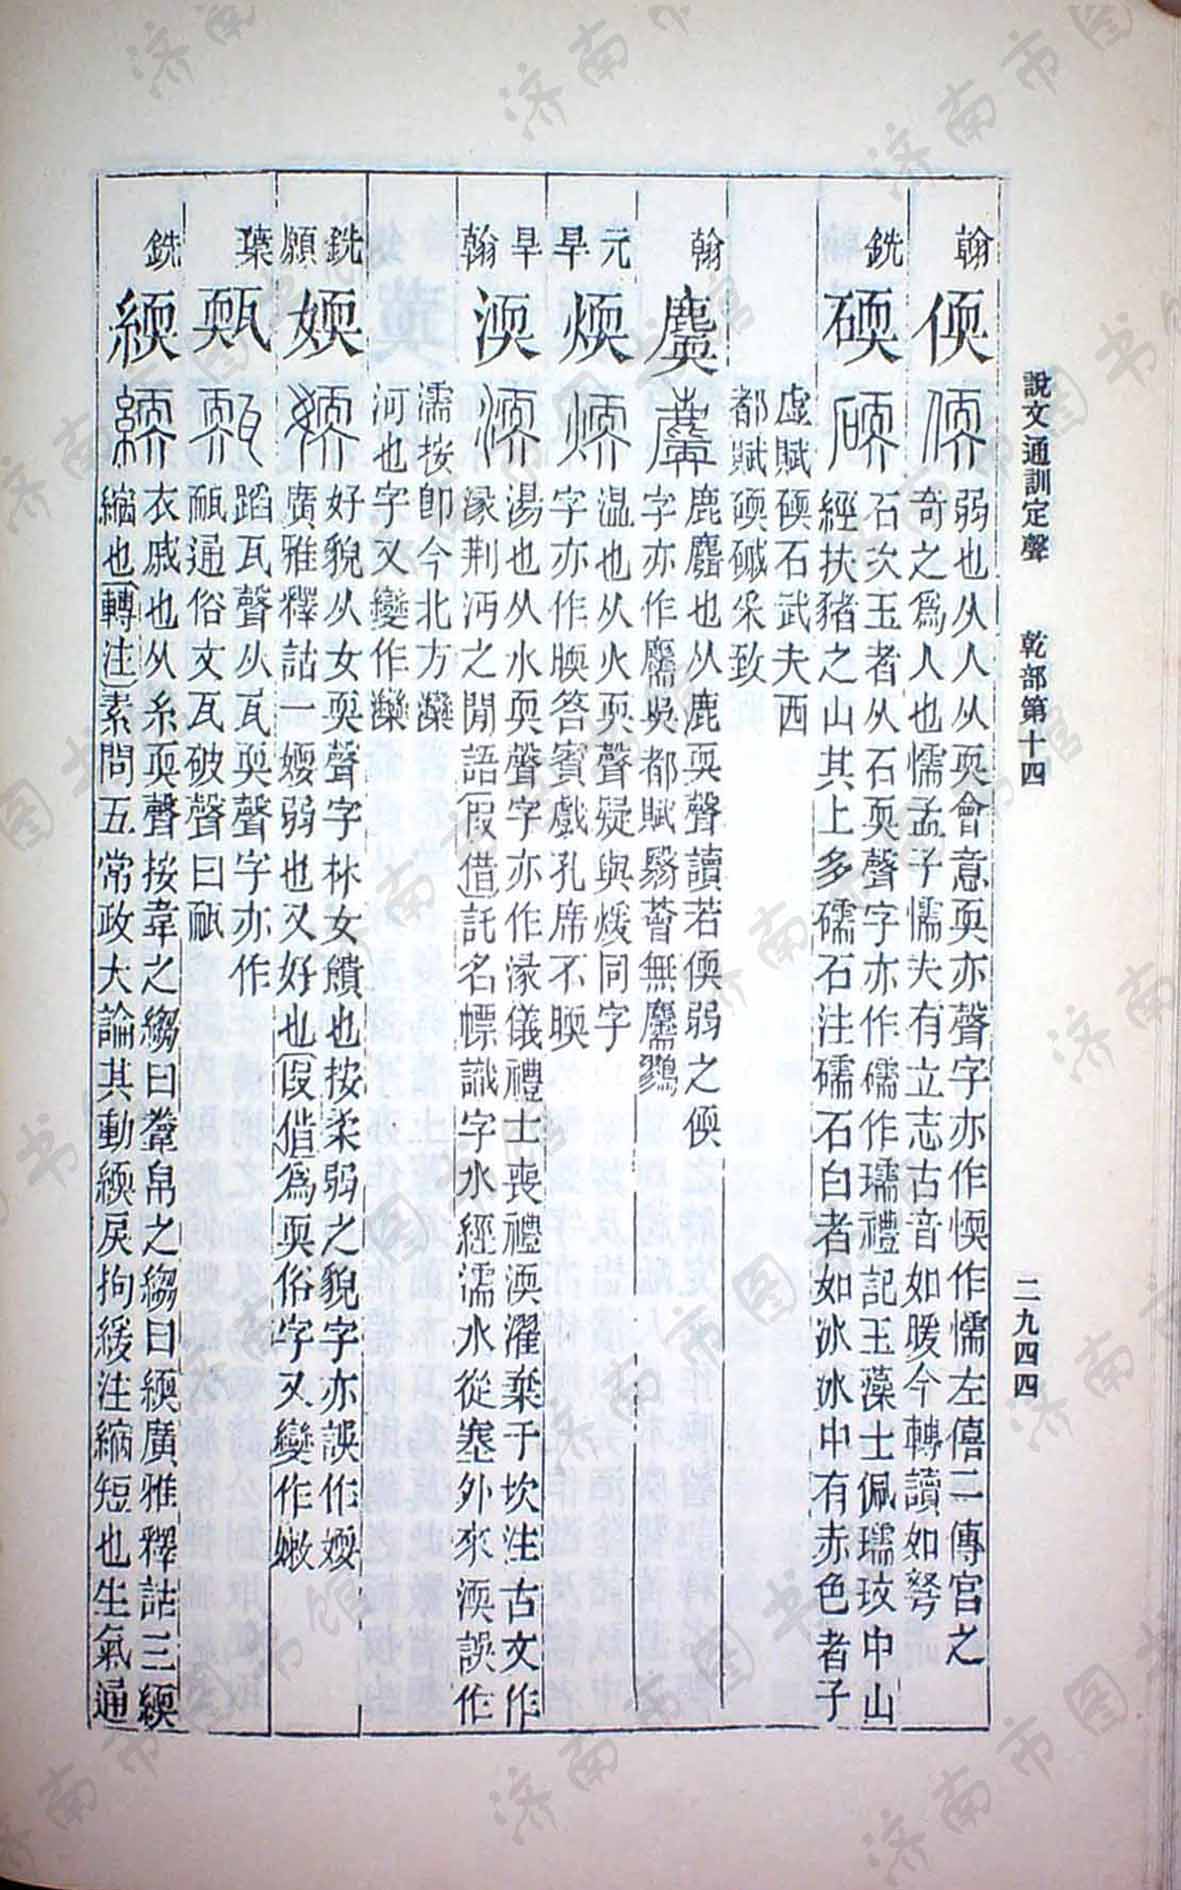 說文通訓定聲　乾部第十四　二九四四
翰
偄
弱也从人从耎會意耎亦聲字亦作愞作懦左僖二傳宮之
奇之爲人也懦孟子懦夫有立志古音如暖今轉讀如弩
銑
碝
石次玉者从石耎聲字亦作礝作瓀禮記玉藻士佩瓀玟中山
經扶豬之山其上多礝石注礝石白者如冰冰中有赤色者子
虛賦碝石武夫西
都賦碝磩采致
翰
麎
鹿麛也从鹿耎聲讀若偄弱之偄
字亦作麢吳都賦翳薈無麡鷚
元
旱
煗
温也从火耎聲疑與煖同字
字亦作㬉答賓戲孔席不㬉
旱
翰
渜
湯也从水耎聲字亦作湪儀禮士喪禮渜濯棄于坎注古文作
湪荆沔之閒語假借託名幖識字水經濡水從塞外來渜誤作
濡按卽今北方灤
河也字又變作灤
銑
願
媆
好貌从女耎聲字林女䞼也按柔弱之貌字亦誤作㜛
廣雅釋詁一㜛弱也又好也假借爲耎俗字又變作嫩
葉
㼲
蹈瓦聲从瓦耎聲字亦作
㼭通俗文瓦破聲曰㼭
銑
緛
衣戚也从糸耎聲按韋之縐曰䩯帛之縐曰緛廣雅釋詁三緛
縮也轉注素問五常政大論其動緛戾拘緩注縮短也生氣通
济南市图书馆